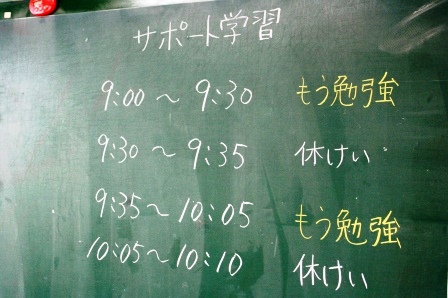 サポート学習
9:00～9:30 もう勉強
9:30～9:35 休けい
9:35～10:05 もう勉強
10:05～10:10 休けい